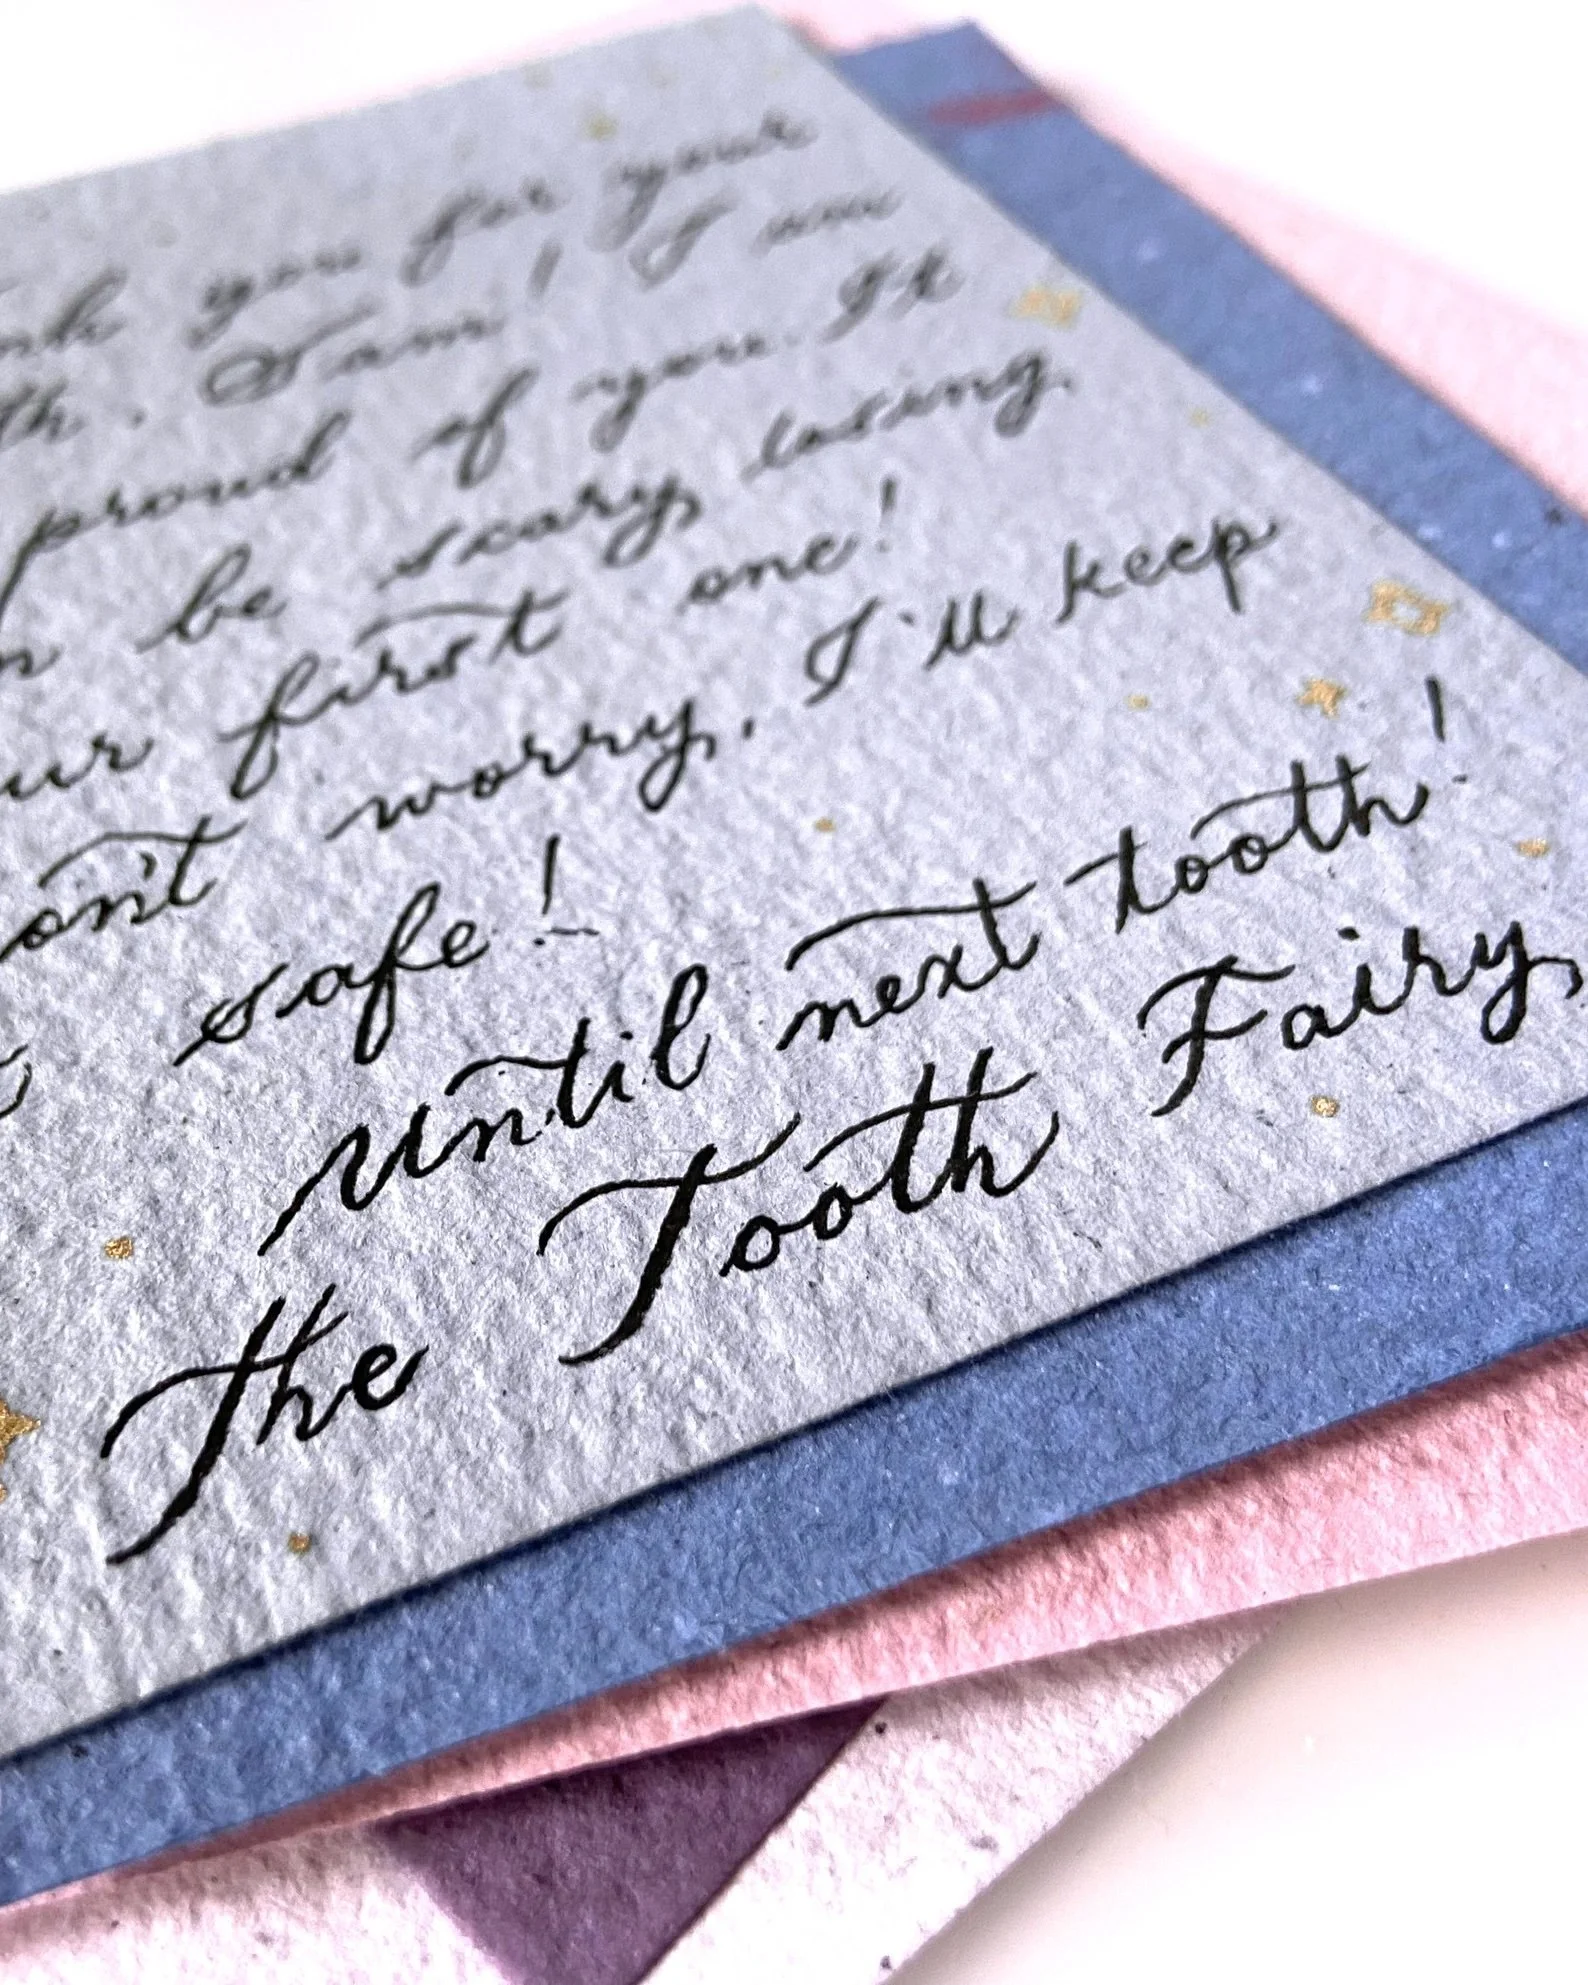 you for your
th. Sam! I
proud of you. It
be scary losing
ur first one!
on't worry, I'll keep
safe!
until next tooth!
the Tooth Fairy,